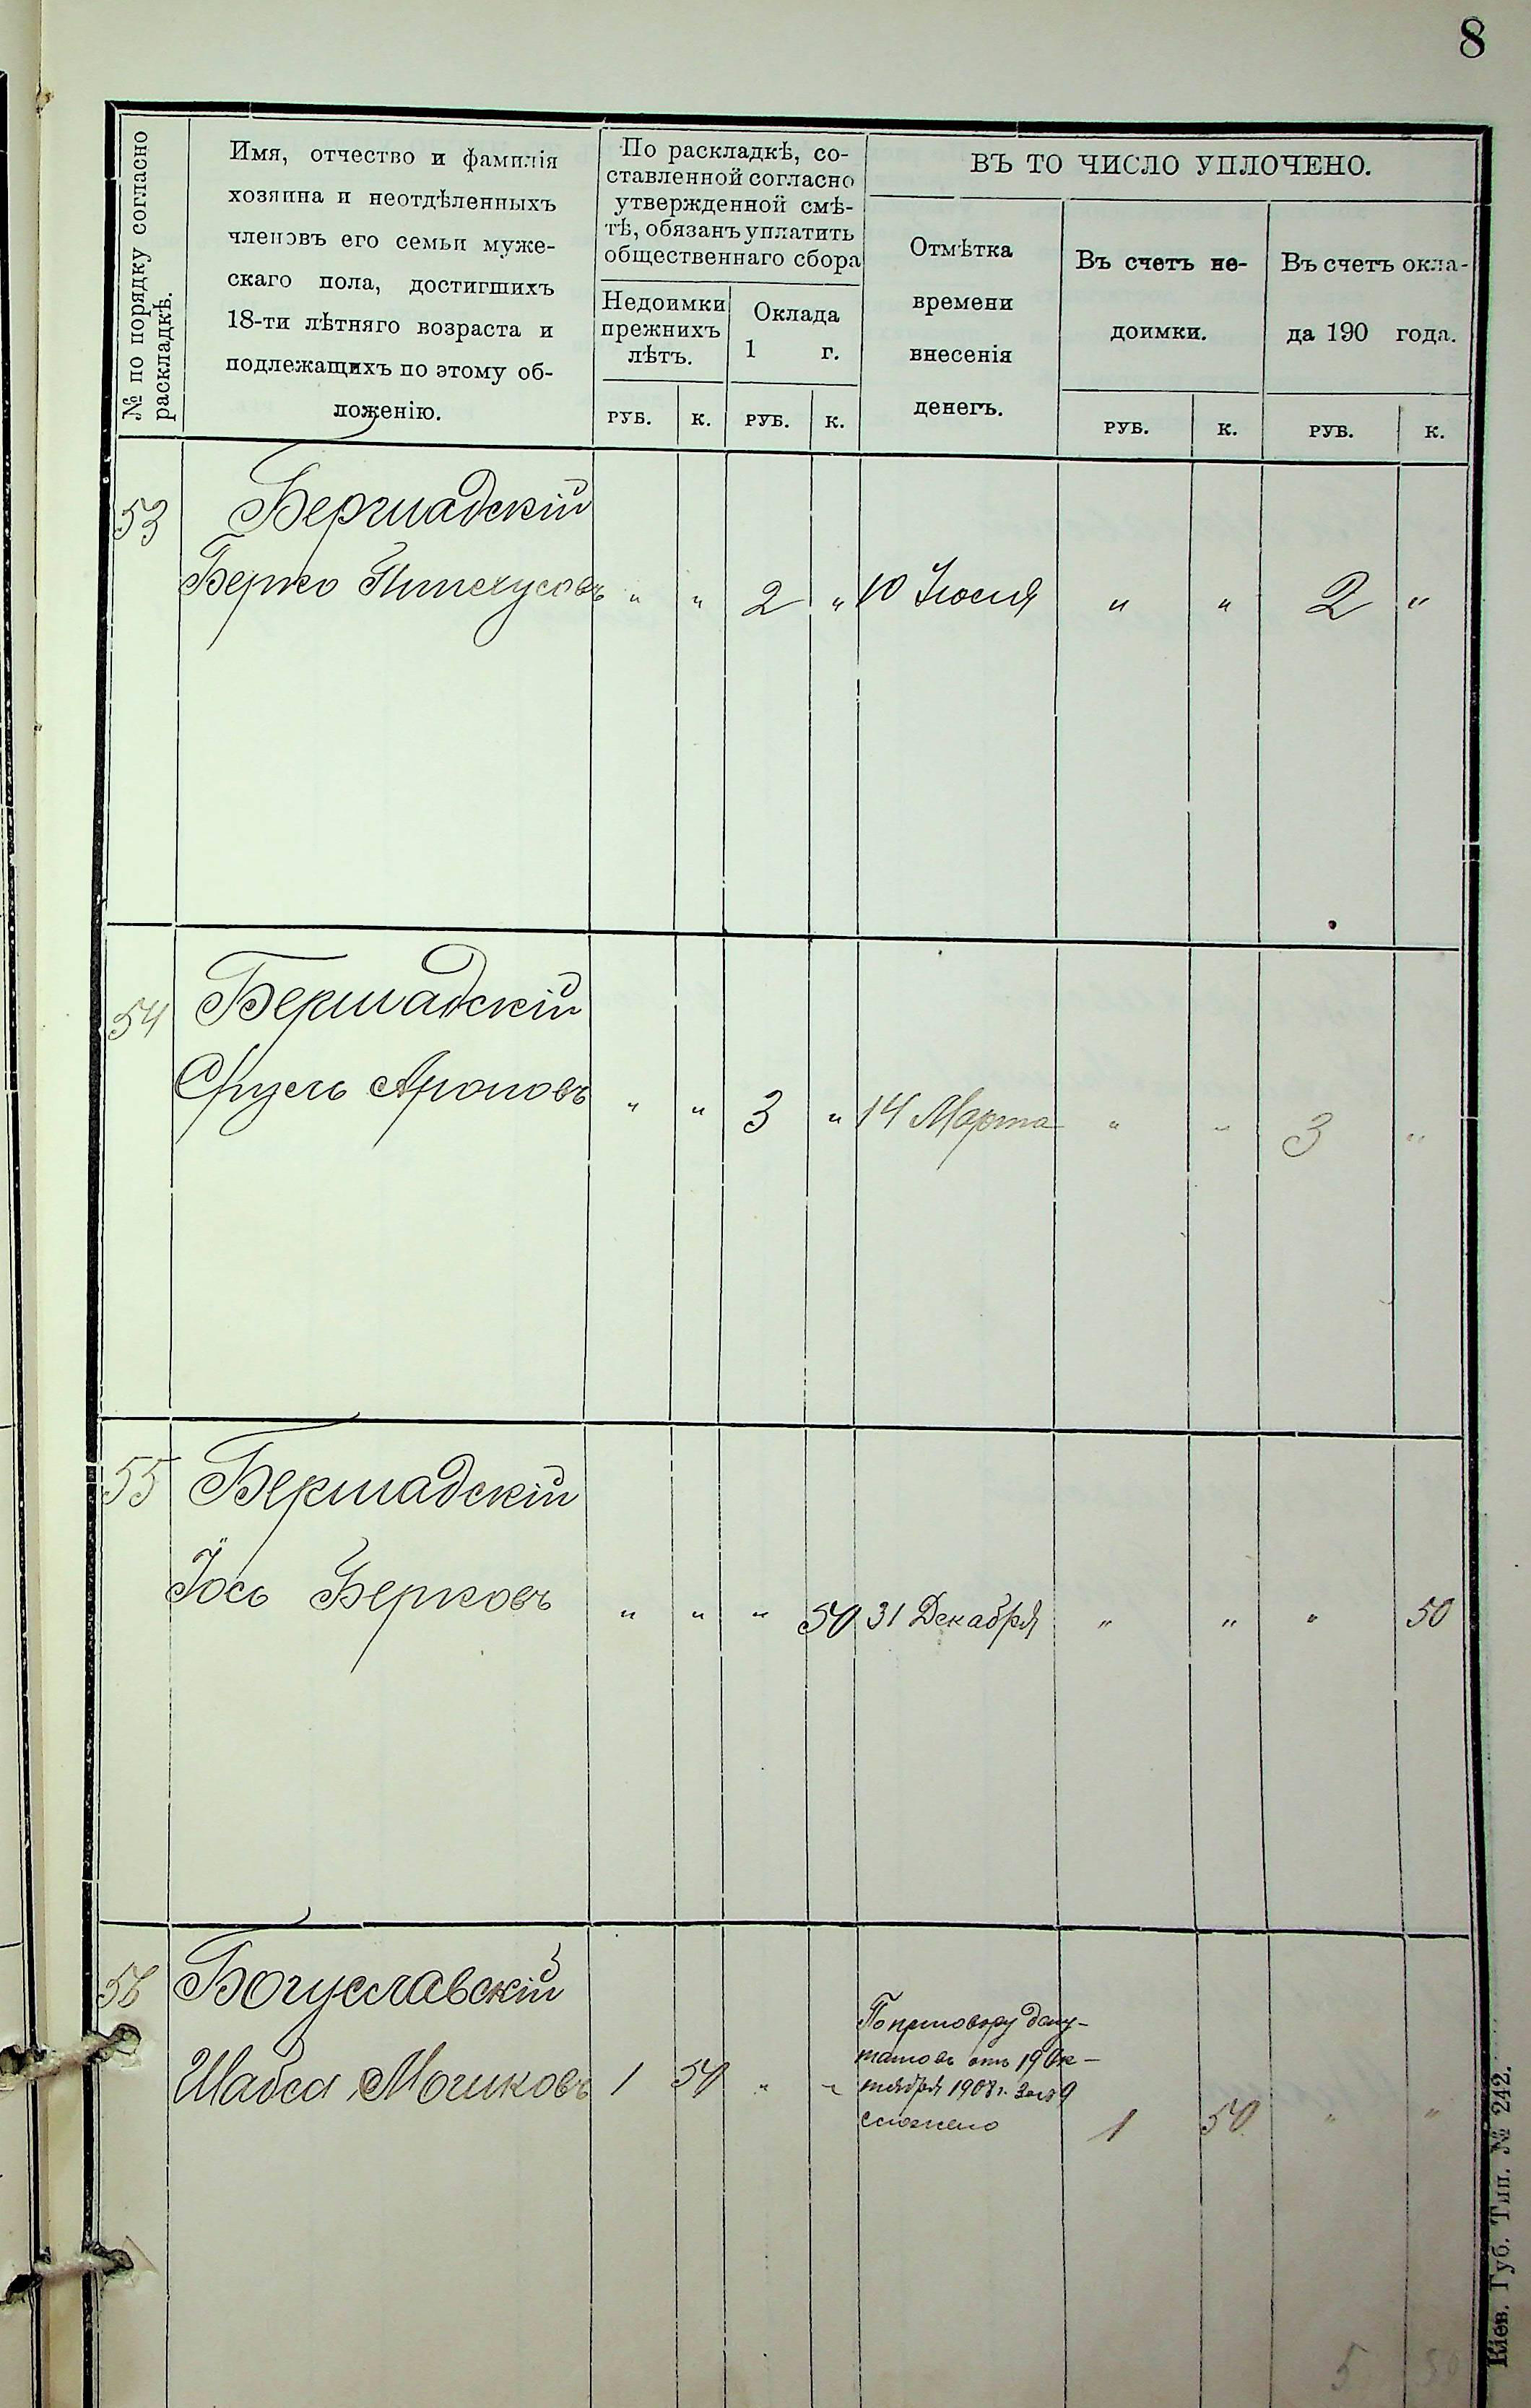 8
№ по порядку согласно
раскладкѣ.
Имя, отчество и фамилія
хозяина и неотдѣленныхъ
членовъ его семьи муже-
скаго пола, достигшихъ
18-ти лѣтняго возраста и
подлежащихъ по этому об-
ложенію.
По раскладкѣ, со-
ставленной согласно
утвержденной смѣ-
тѣ, обязанъ уплатить
общественнаго сбора
Недоимки
прежнихъ
лѣтъ.
Оклада
1 г.
ВЪ ТО ЧИСЛО УПЛОЧЕНО.
Отмѣтка
времени
внесенія
денегъ.
Въ счетъ не-
доимки.
Въ счетъ окла-
да 190 года.
РУБ. К. РУБ. К. РУБ. К. РУБ. К.
53 Бершадскій
Берко Пинхусовъ " " 2 " 10 Іюля " " 2 "
54 Бершадскій
Сруль Ароновъ " " 3 " 14 Марта " " 3 "
55 Бершадскій
Іось Берковъ " " " 50 31 Декабря " " " 50
56 Богуславскій
Шабса Мошковъ 1 50 " " 1 50 " "
По приговору депу-
татовъ отъ 19 Ок-
тября 1908 г. за № 9
сложено
5 50
Кіев. Губ. Тип. № 242.